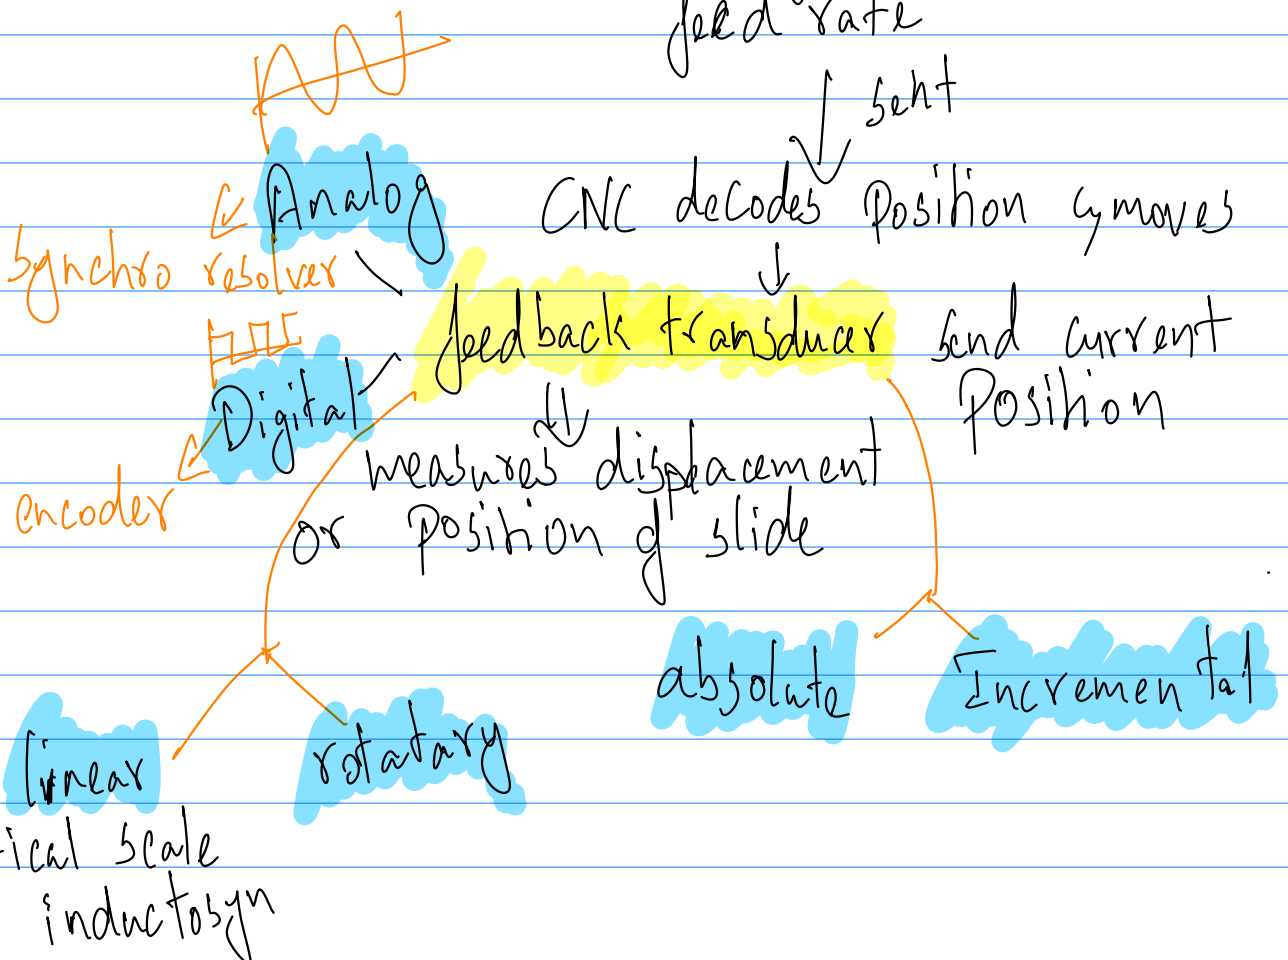 feed rate
sent
Analog
CNC decodes position & moves
synchro resolver
feedback transducer send current
position
Digital
measures displacement
encoder
or position of slide
absolute Incremental
linear rotatary
ical scale
inductosyn